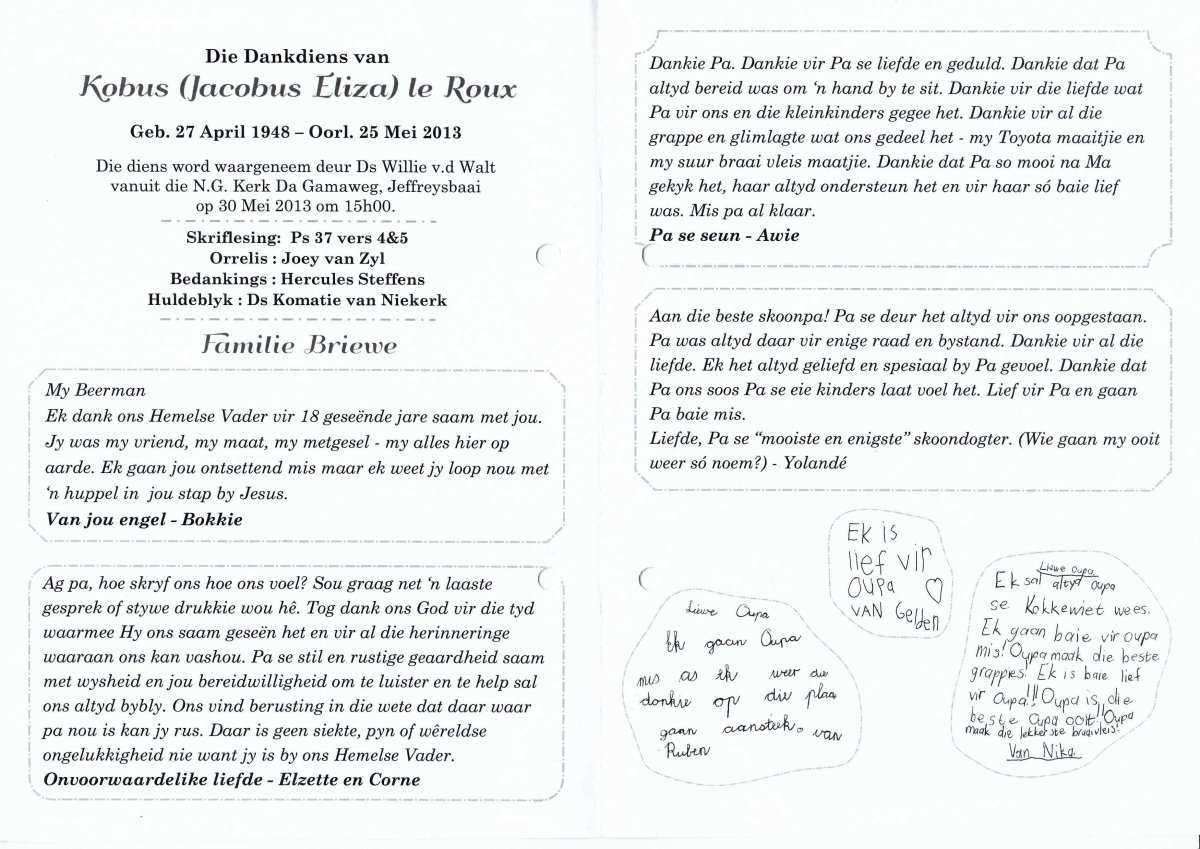 Die Dankdiens van
Kobus (Jacobus Eliza) le Roux
Geb. 27 April 1948 – Oorl. 25 Mei 2013
Die diens word waargeneem deur Ds Willie v.d Walt
vanuit die N.G. Kerk Da Gamaweg, Jeffreysbaai
op 30 Mei 2013 om 15h00.
Skriflesing: Ps 37 vers 4&5
Orrelis : Joey van Zyl
Bedankings : Hercules Steffens
Huldeblyk : Ds Komatie van Niekerk
Familie Briewe
My Beerman
Ek dank ons Hemelse Vader vir 18 geseënde jare saam met jou.
Jy was my vriend, my maat, my metgesel - my alles hier op
aarde. Ek gaan jou ontsettend mis maar ek weet jy loop nou met
‘n huppel in jou stap by Jesus.
Van jou engel - Bokkie
Ag pa, hoe skryf ons hoe ons voel? Sou graag net ‘n laaste
gesprek of stywe drukkie wou hê. Tog dank ons God vir die tyd
waarmee Hy ons saam geseën het en vir al die herinneringe
waaraan ons kan vashou. Pa se stil en rustige geaardheid saam
met wysheid en jou bereidwilligheid om te luister en te help sal
ons altyd bybly. Ons vind berusting in die wete dat daar waar
pa nou is kan jy rus. Daar is geen siekte, pyn of wêreldse
ongelukkigheid nie want jy is by ons Hemelse Vader.
Onvoorwaardelike liefde - Elzette en Corne
Dankie Pa. Dankie vir Pa se liefde en geduld. Dankie dat Pa
altyd bereid was om ‘n hand by te sit. Dankie vir die liefde wat
Pa vir ons en die kleinkinders gegee het. Dankie vir al die
grappe en glimlagte wat ons gedeel het - my Toyota maaitjie en
my suur braai vleis maatjie. Dankie dat Pa so mooi na Ma
gekyk het, haar altyd ondersteun het en vir haar só baie lief
was. Mis pa al klaar.
Pa se seun - Awie
Aan die beste skoonpa! Pa se deur het altyd vir ons oopgestaan.
Pa was altyd daar vir enige raad en bystand. Dankie vir al die
liefde. Ek het altyd geliefd en spesiaal by Pa gevoel. Dankie dat
Pa ons soos Pa se eie kinders laat voel het. Lief vir Pa en gaan
Pa baie mis.
Liefde, Pa se “mooiste en enigste” skoondogter. (Wie gaan my ooit
weer só noem?) - Yolandé
Liewe Oupa
Ek gaan Oupa
mis as ek weer die
donkie op die plaas
gaan aansteek. van
Ruben
Ek is
lief vir
OUPA
VAN Gelden
Liewe Oupa
Ek sal altyd oupa
se Kokkewiet wees.
Ek gaan baie vir oupa
mis! Oupa maak die beste
grappies! Ek is baie lief
vir Oupa!! Oupa is die
beste Oupa ooit!! Oupa
maak die lekkerste braaivleis!
Van Nika